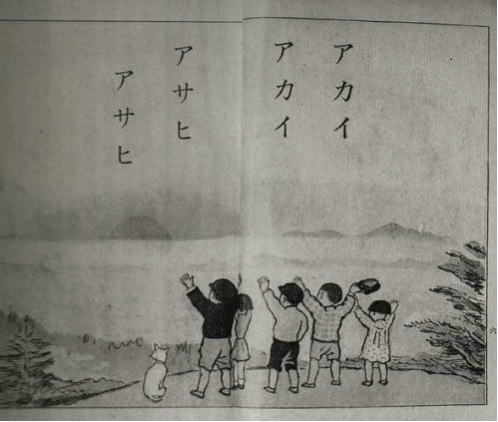 アカイ
アカイ
アサヒ
アサヒ
六